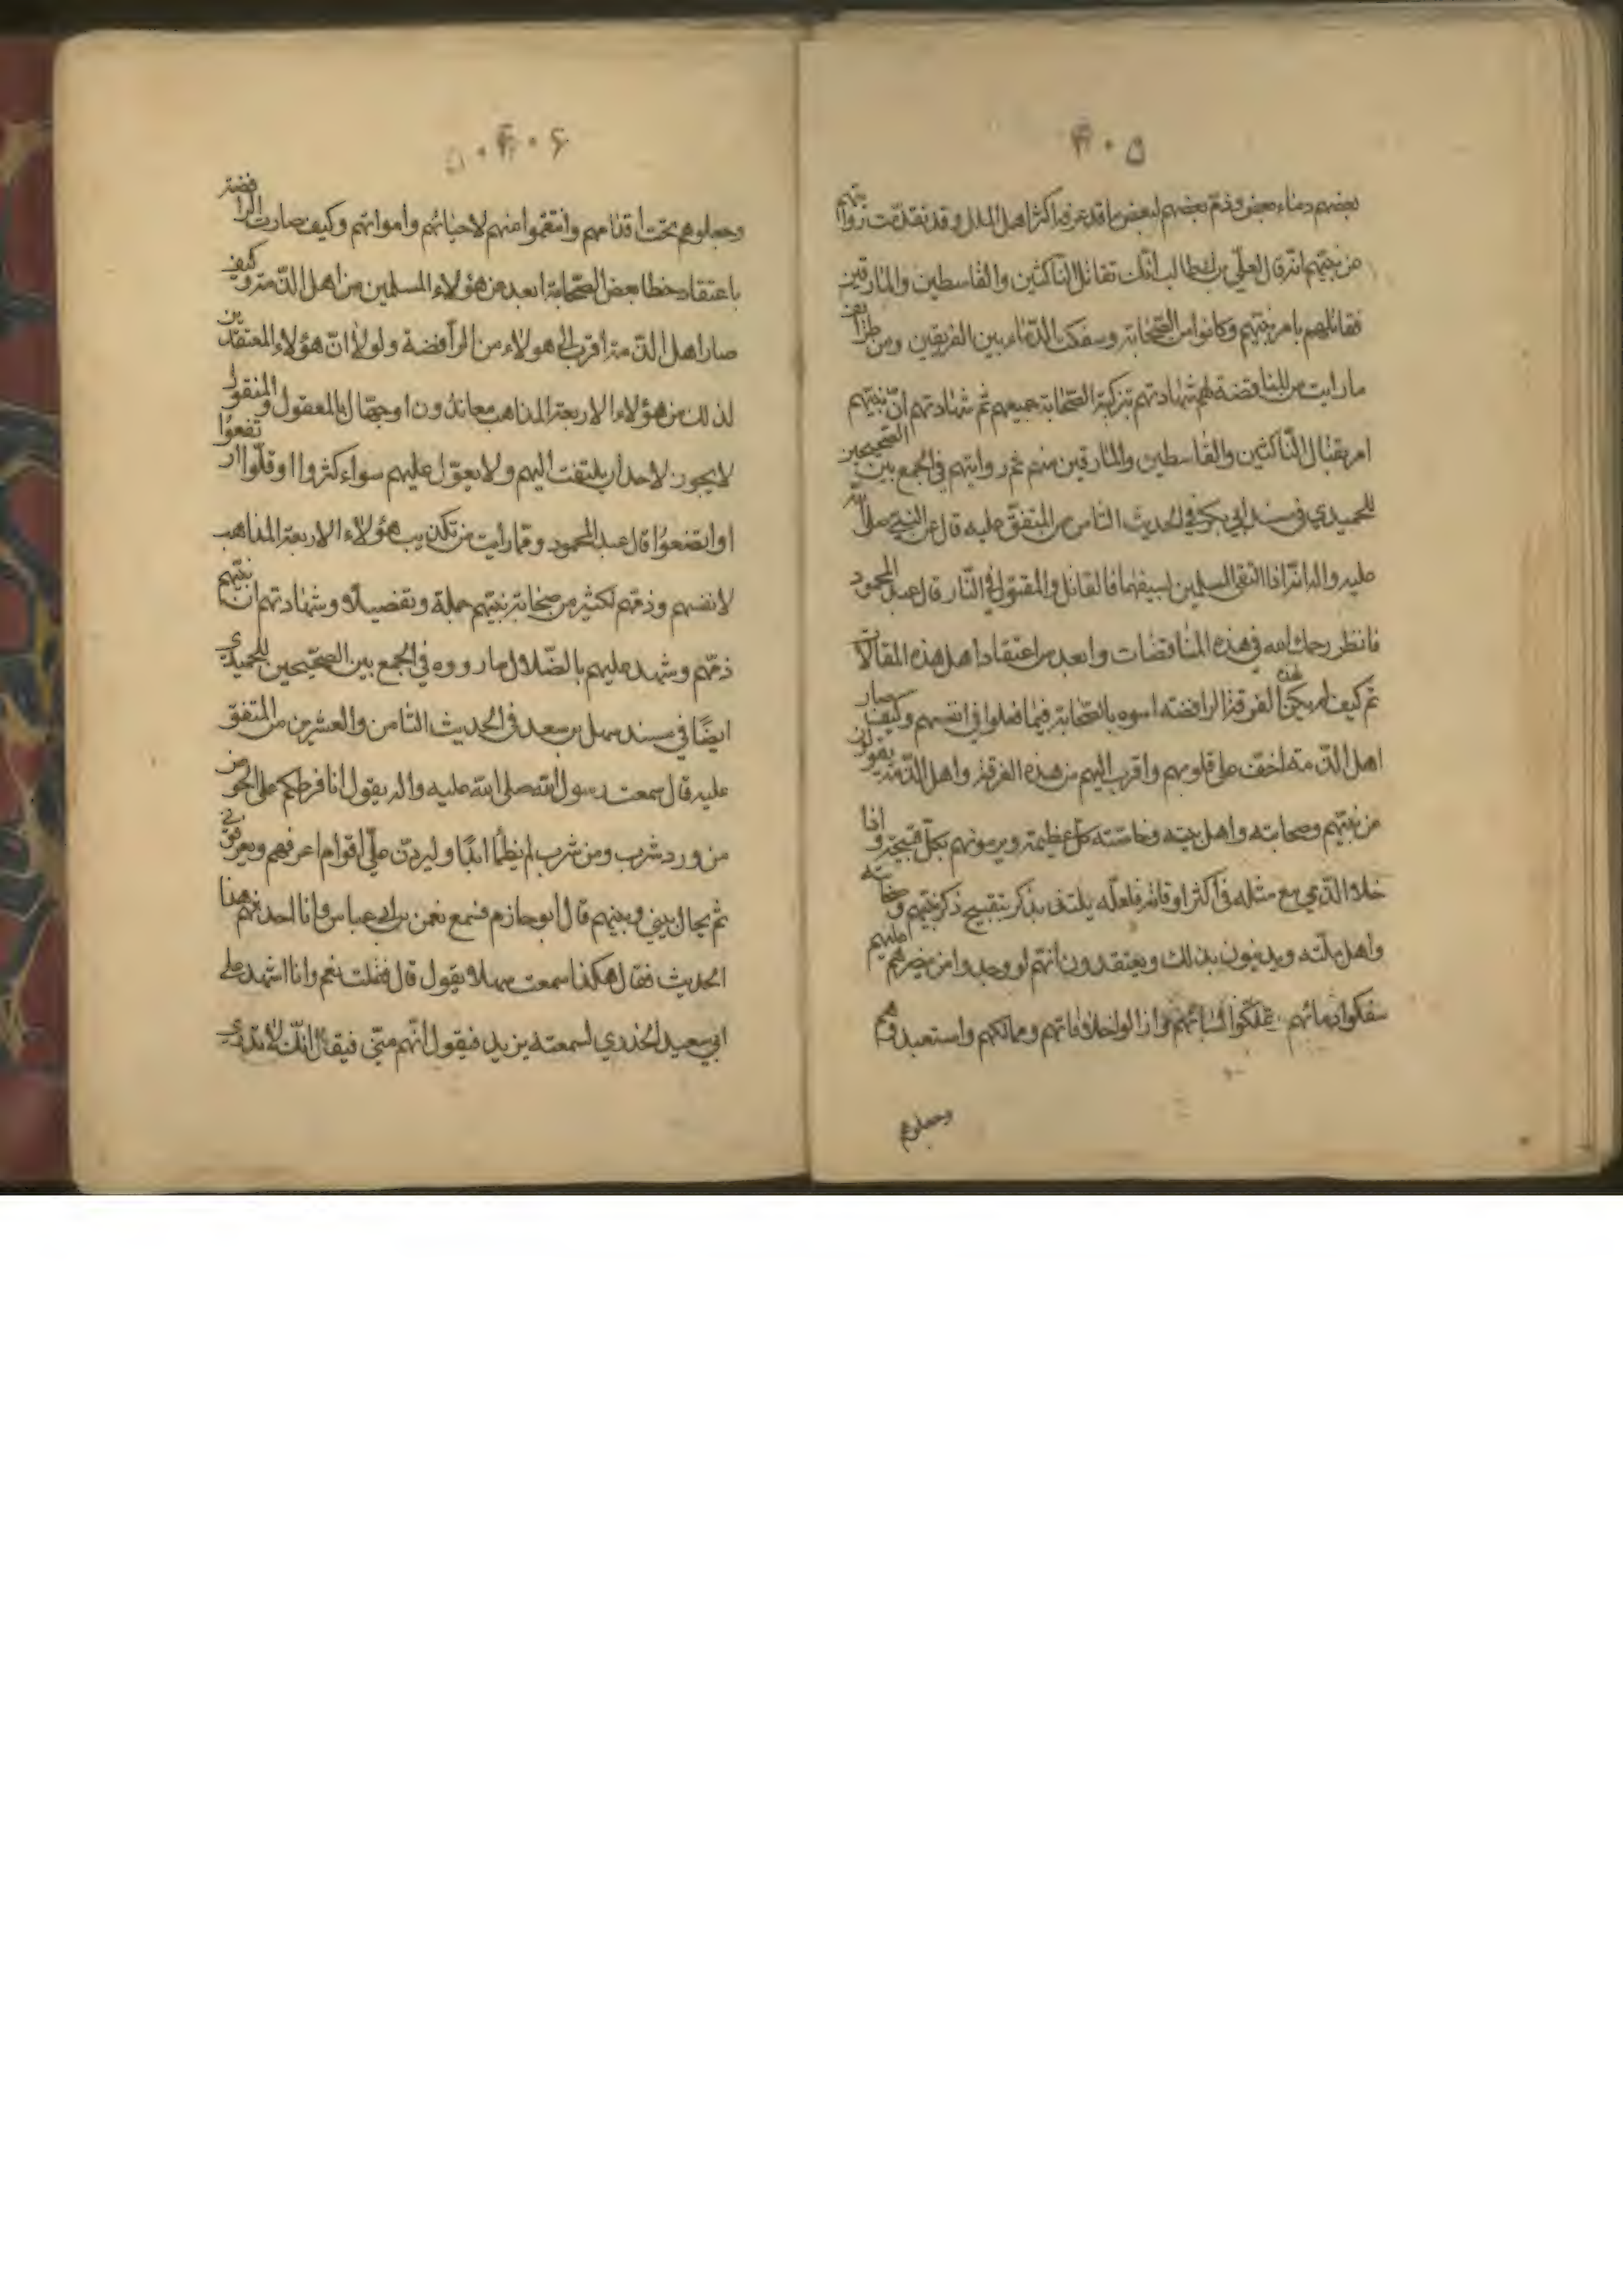 ۴۰۵
بعضهم دماء بعض وذم بعضهم لبعض ما قد عرفه اكثر اهل الملل وقد تقدمت روايتهم
من نبيهم انه قال لعلي بن ابيطالب انك تقاتل الناكثين والقاسطين والمارقين
فقاتلهم بامر نبيهم وكانوا من الصحابة وسفك الدماء بين الفريقين ومن طرائف
ما رايت من المناقضة لهم شهادتهم بتزكية الصحابة جميعهم ثم شهادتهم ان نبيهم
امر بقتال الناكثين والقاسطين والمارقين منهم ثم روايتهم في الجمع بين الصحيحين
للحميدي في مسند ابي بكرة في الحديث الثامن من المتفق عليه قال عن النبي صلى الله
عليه واله انه اذا التقى المسلمين بسيفهما فالقاتل والمقتول في النار قال عبد المحمود
فانظر رحمك الله في هذه المناقضات وابعد من اعتقاد اهل هذه المقالات
ثم كيف لم يكن لهذه الفرقة الرافضة اسوه بالصحابة فيما فعلوا في انفسهم وكيف صار
اهل الذمة اخف على قلوبهم واقرب اليهم من هذه الفرقة واهل الذمة يقولون
من نبيهم وصحابته واهل بيته وخاصته كل عظيمة ويرمونهم بكل قبيحة واذا
خلا الذمي مع مثله في اكثر اوقاته فلعله يلتذ بذكر بتقبيح ذكر نبيهم وصحابته
واهل ملته ويدينون بذلك ويعتقدون انهم لو وجدوا من ينصرهم عليهم
سفكوا دمائهم وتملكوا نسائهم وازالوا خلافاتهم وممالكهم واستعبدوهم
وجعلوهم
۴۰۶
وجعلوهم تحت اقدامهم وانتقموا منهم لاحيائهم وامواتهم وكيف صارت الرافضة
باعتقاد خطا بعض الصحابة ابعد من هؤلاء المسلمين من اهل الذمة وكيف
صار اهل الذمة اقرب الى هولاء من الرافضة ولولا ان هؤلاء المعتقدين
لذلك من هؤلاء الاربعة المذاهب معاندون او جهال بالمعقول والمنقول
لا يجوز لاحد ان يلتفت اليهم ولا يعول عليهم سواء كثروا او قلوا ارتفعوا
او اتضعوا قال عبد المحمود ومما رايت من تكذيب هؤلاء الاربعة المذاهب
لانفسهم وذمهم لكثير من صحابة نبيهم جملة وتفصيلا وشهادتهم ان نبيهم
ذمهم وشهد عليهم بالضلال ما رووه في الجمع بين الصحيحين للحميدي
ايضا في مسند سهل بن سعد في الحديث الثامن والعشرين من المتفق
عليه قال سمعت رسول الله صلى الله عليه واله يقول انا فرطكم على الحوض
من ورد شرب ومن شرب لم يظما ابدا وليردن علي اقوام اعرفهم ويعرفوني
ثم يحال بيني وبينهم قال ابو حازم فسمع نعمن بن ابي عياس وانا احدثهم هذا
الحديث فقال هكذا سمعت سهلا يقول قال فقلت نعم وانا اشهد على
ابي سعيد الخدري لسمعته يزيد فيقول انهم مني فيقال انك لا تدري